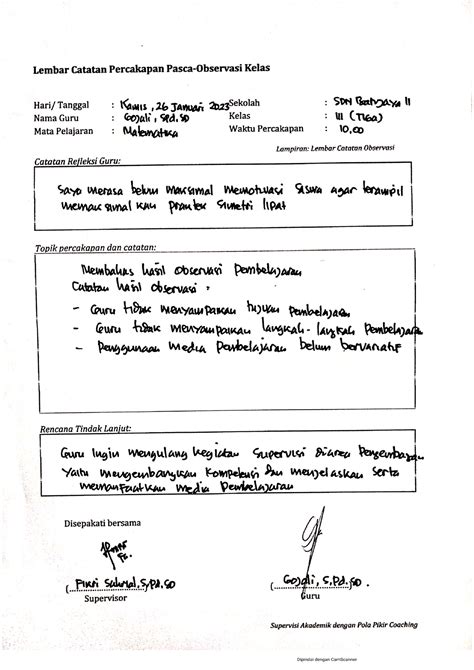 Lembar Catatan Percakapan Pasca-Observasi Kelas
Hari/ Tanggal : Kamis, 26 Januari 2023 Sekolah : SDN II
Nama Guru : Gojali, S.Pd.SD Kelas : III (Tiga)
Mata Pelajaran : Matematika Waktu Percakapan : 10.00
Lampiran: Lembar Catatan Observasi
Catatan Refleksi Guru:
Saya merasa belum maksimal memotivasi siswa agar terampil
memaksimalkan praktek simetri lipat
Topik percakapan dan catatan:
Membahas hasil observasi Pembelajaran
Catatan hasil observasi :
- Guru tidak menyampaikan tujuan Pembelajaran
- Guru tidak menyampaikan langkah-langkah Pembelajaran
- Penggunaan media Pembelajaran belum bervariatif
Rencana Tindak Lanjut:
Guru ingin mengulang kegiatan supervisi diarea Pengembangan
yaitu mengembangkan kompetensi dan menjelaskan serta
memanfaatkan media Pembelajaran
Disepakati bersama
(Fikri S.Pd.SD) (Gojali, S.Pd.SD.)
Supervisor Guru
Supervisi Akademik dengan Pola Pikir Coaching
Dipindai dengan CamScanner